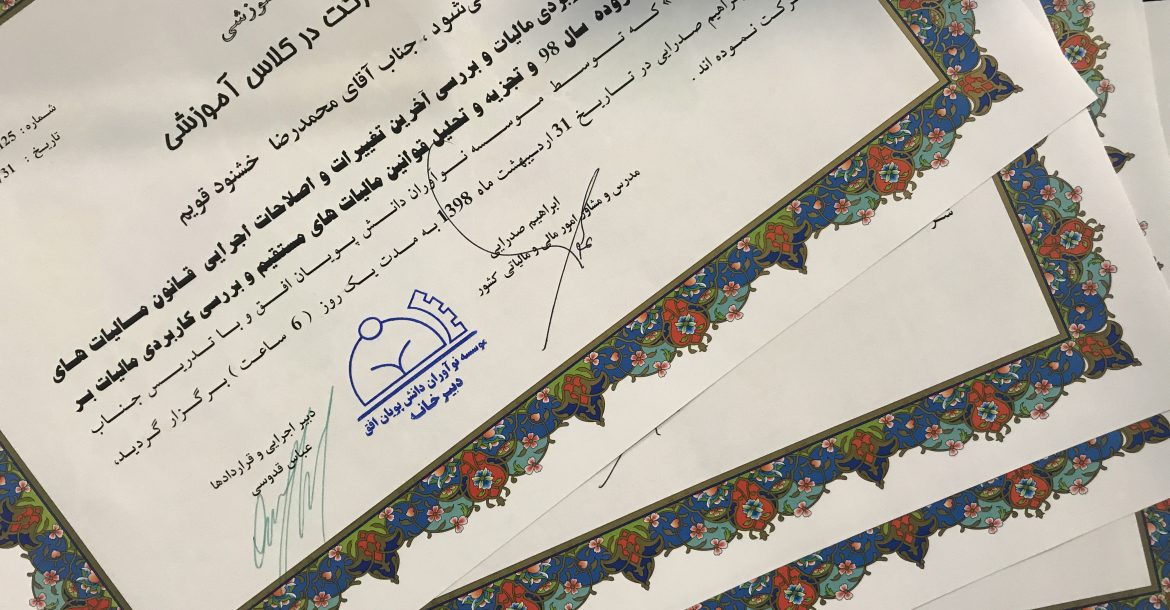 آموزشی
شرکت در کلاس آموزشی
شماره : 125
تاریخ : /31
می‌شود ، جناب آقای محمدرضا خشنود قویم
بردی مالیات و بررسی آخرین تغییرات و اصلاحات اجرایی قانون مالیات های
سال 98 و تجزیه و تحلیل قوانین مالیات های مستقیم و بررسی کاربردی مالیات بر
» که توسط موسسه نوآوران دانش پویان افق و با تدریس جناب
ابراهیم صدرایی در تاریخ 31 اردیبهشت ماه 1398 به مدت یک روز ( 6 ساعت ) برگزار گردید،
شرکت نموده اند .
ابراهیم صدرایی
مدرس و مشاور امور مالی و مالیاتی کشور
موسسه نوآوران دانش پویان افق
دبیرخانه
دبیر اجرایی و قراردادها
عباس قدوسی